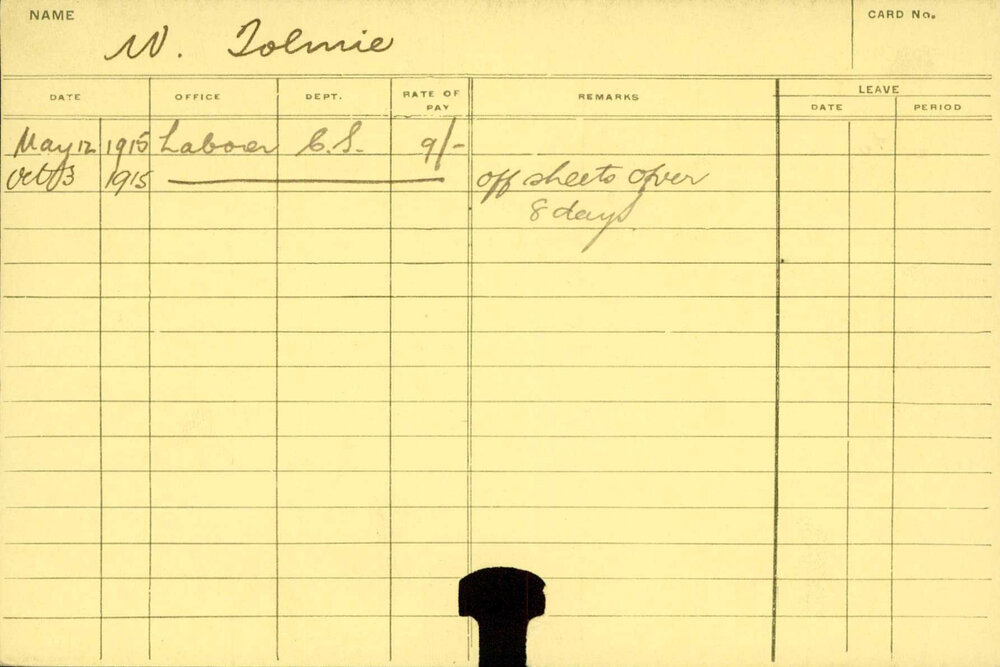 NAME W. Tolmie CARD No.
DATE OFFICE DEPT. RATE OF PAY REMARKS LEAVE
DATE PERIOD
May 12 1915 Laborer C.S. 9/-
Oct 3 1915 off sheets over
8 days